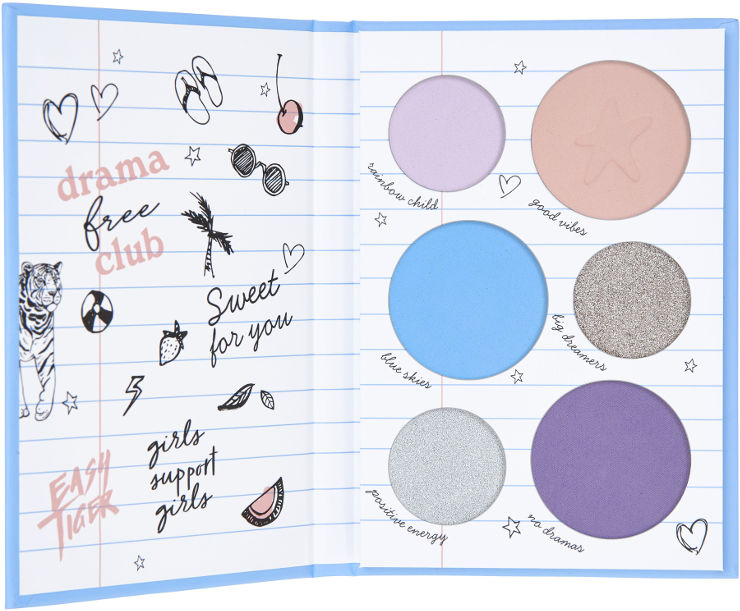 drama
free
club
Sweet
for you
girls
support
girls
EASY
TIGER
rainbow child
good vibes
blue skies
big dreamers
positive energy
no dramas